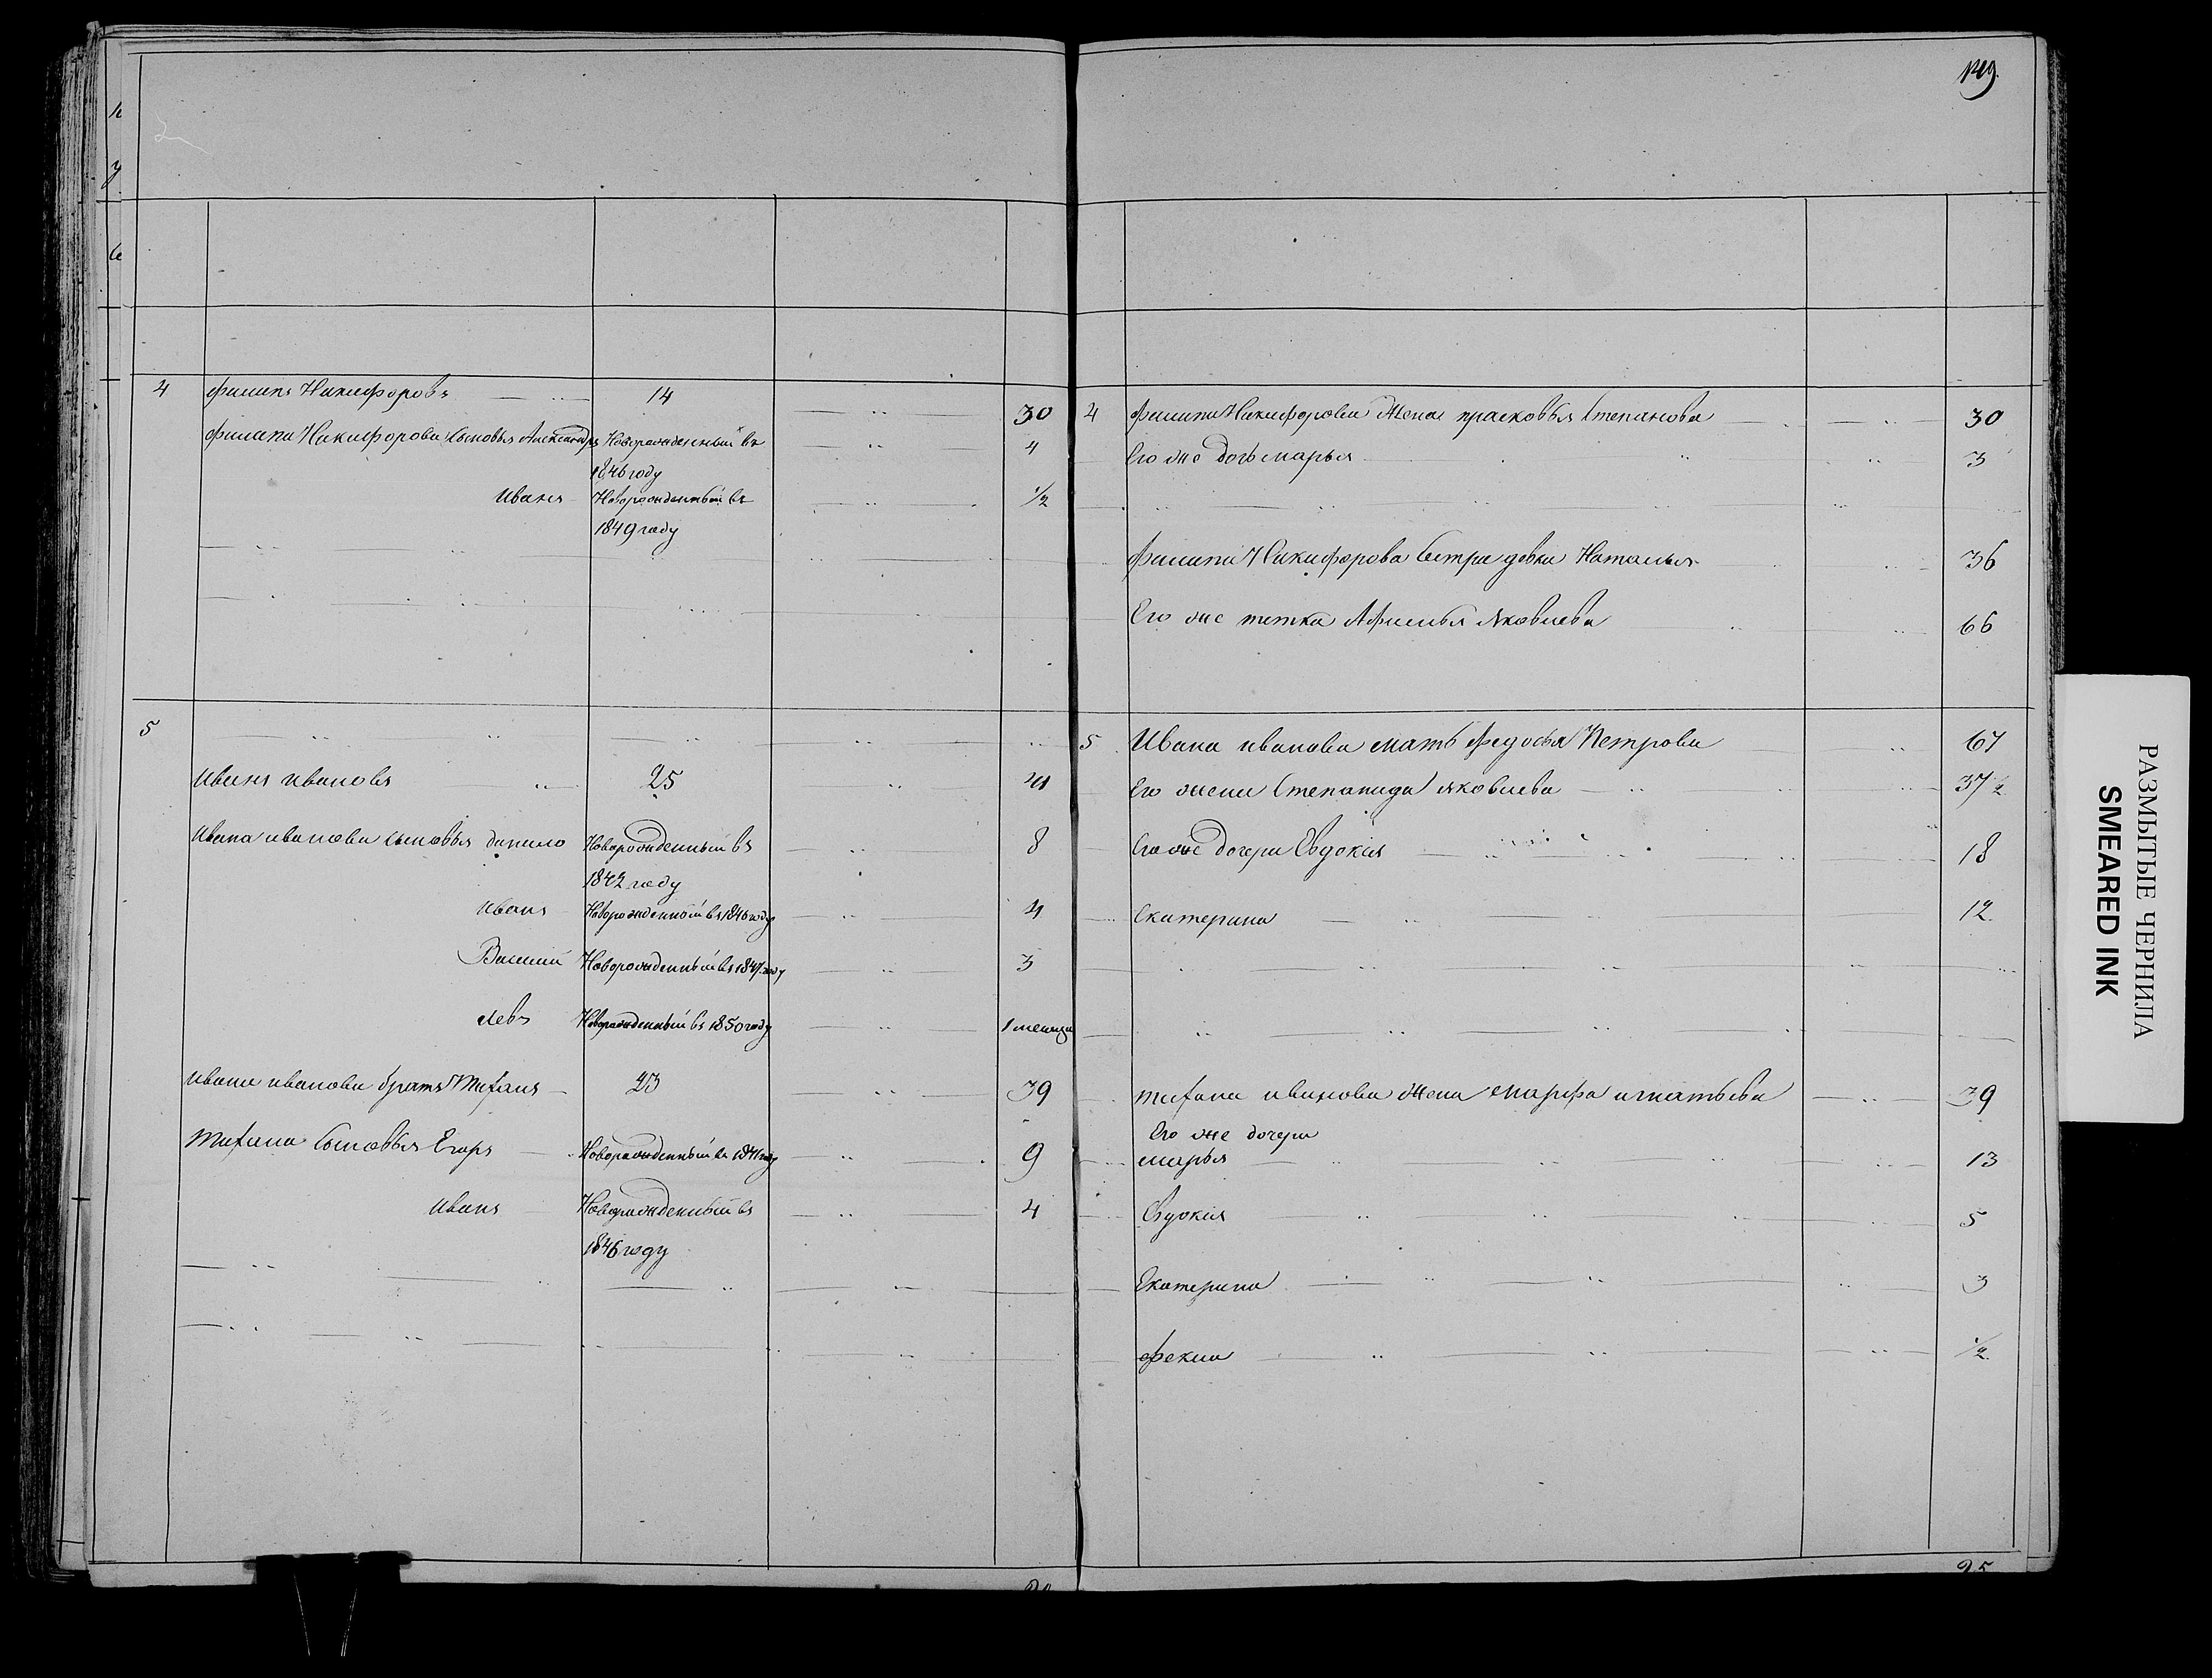 129.
4 филипъ Никифоровъ 14 30
филипа Никифорова сыновья Александръ Новорожденный въ 4
1846 году
иванъ Новорожденный въ 1/2
1849 году
5
иванъ ивановъ 25 41
ивана иванова сыновья данило Новорожденный въ 8
1842 году
иванъ Новорожденный въ 1846 году 4
Василий Новорожденный въ 1847 году 3
левъ Новорожденный въ 1850 году 1 месяца
ивана иванова братъ Тифанъ 23 39
Тифана сыновья Егоръ Новорожденный въ 1841 году 9
иванъ Новорожденный въ 4
1846 году
4 филипа Никифорова жена прасковья степанова 30
Его же дочь марья 3
филипа Никифорова сестра девка Наталья 36
Его же тетка Афимья яковлева 66
5 Ивана иванова мать федосья Петрова 67
Его жена степанида яковлева 37 1/2
Его же дочери Евдокия 18
Екатерина 12
тифана иванова жена марфа игнатьева 39
Его же дочери
марья 13
Евдокия 5
Екатерина 3
фекла 1/2
25
РАЗМЫТЫЕ ЧЕРНИЛА
SMEARED INK